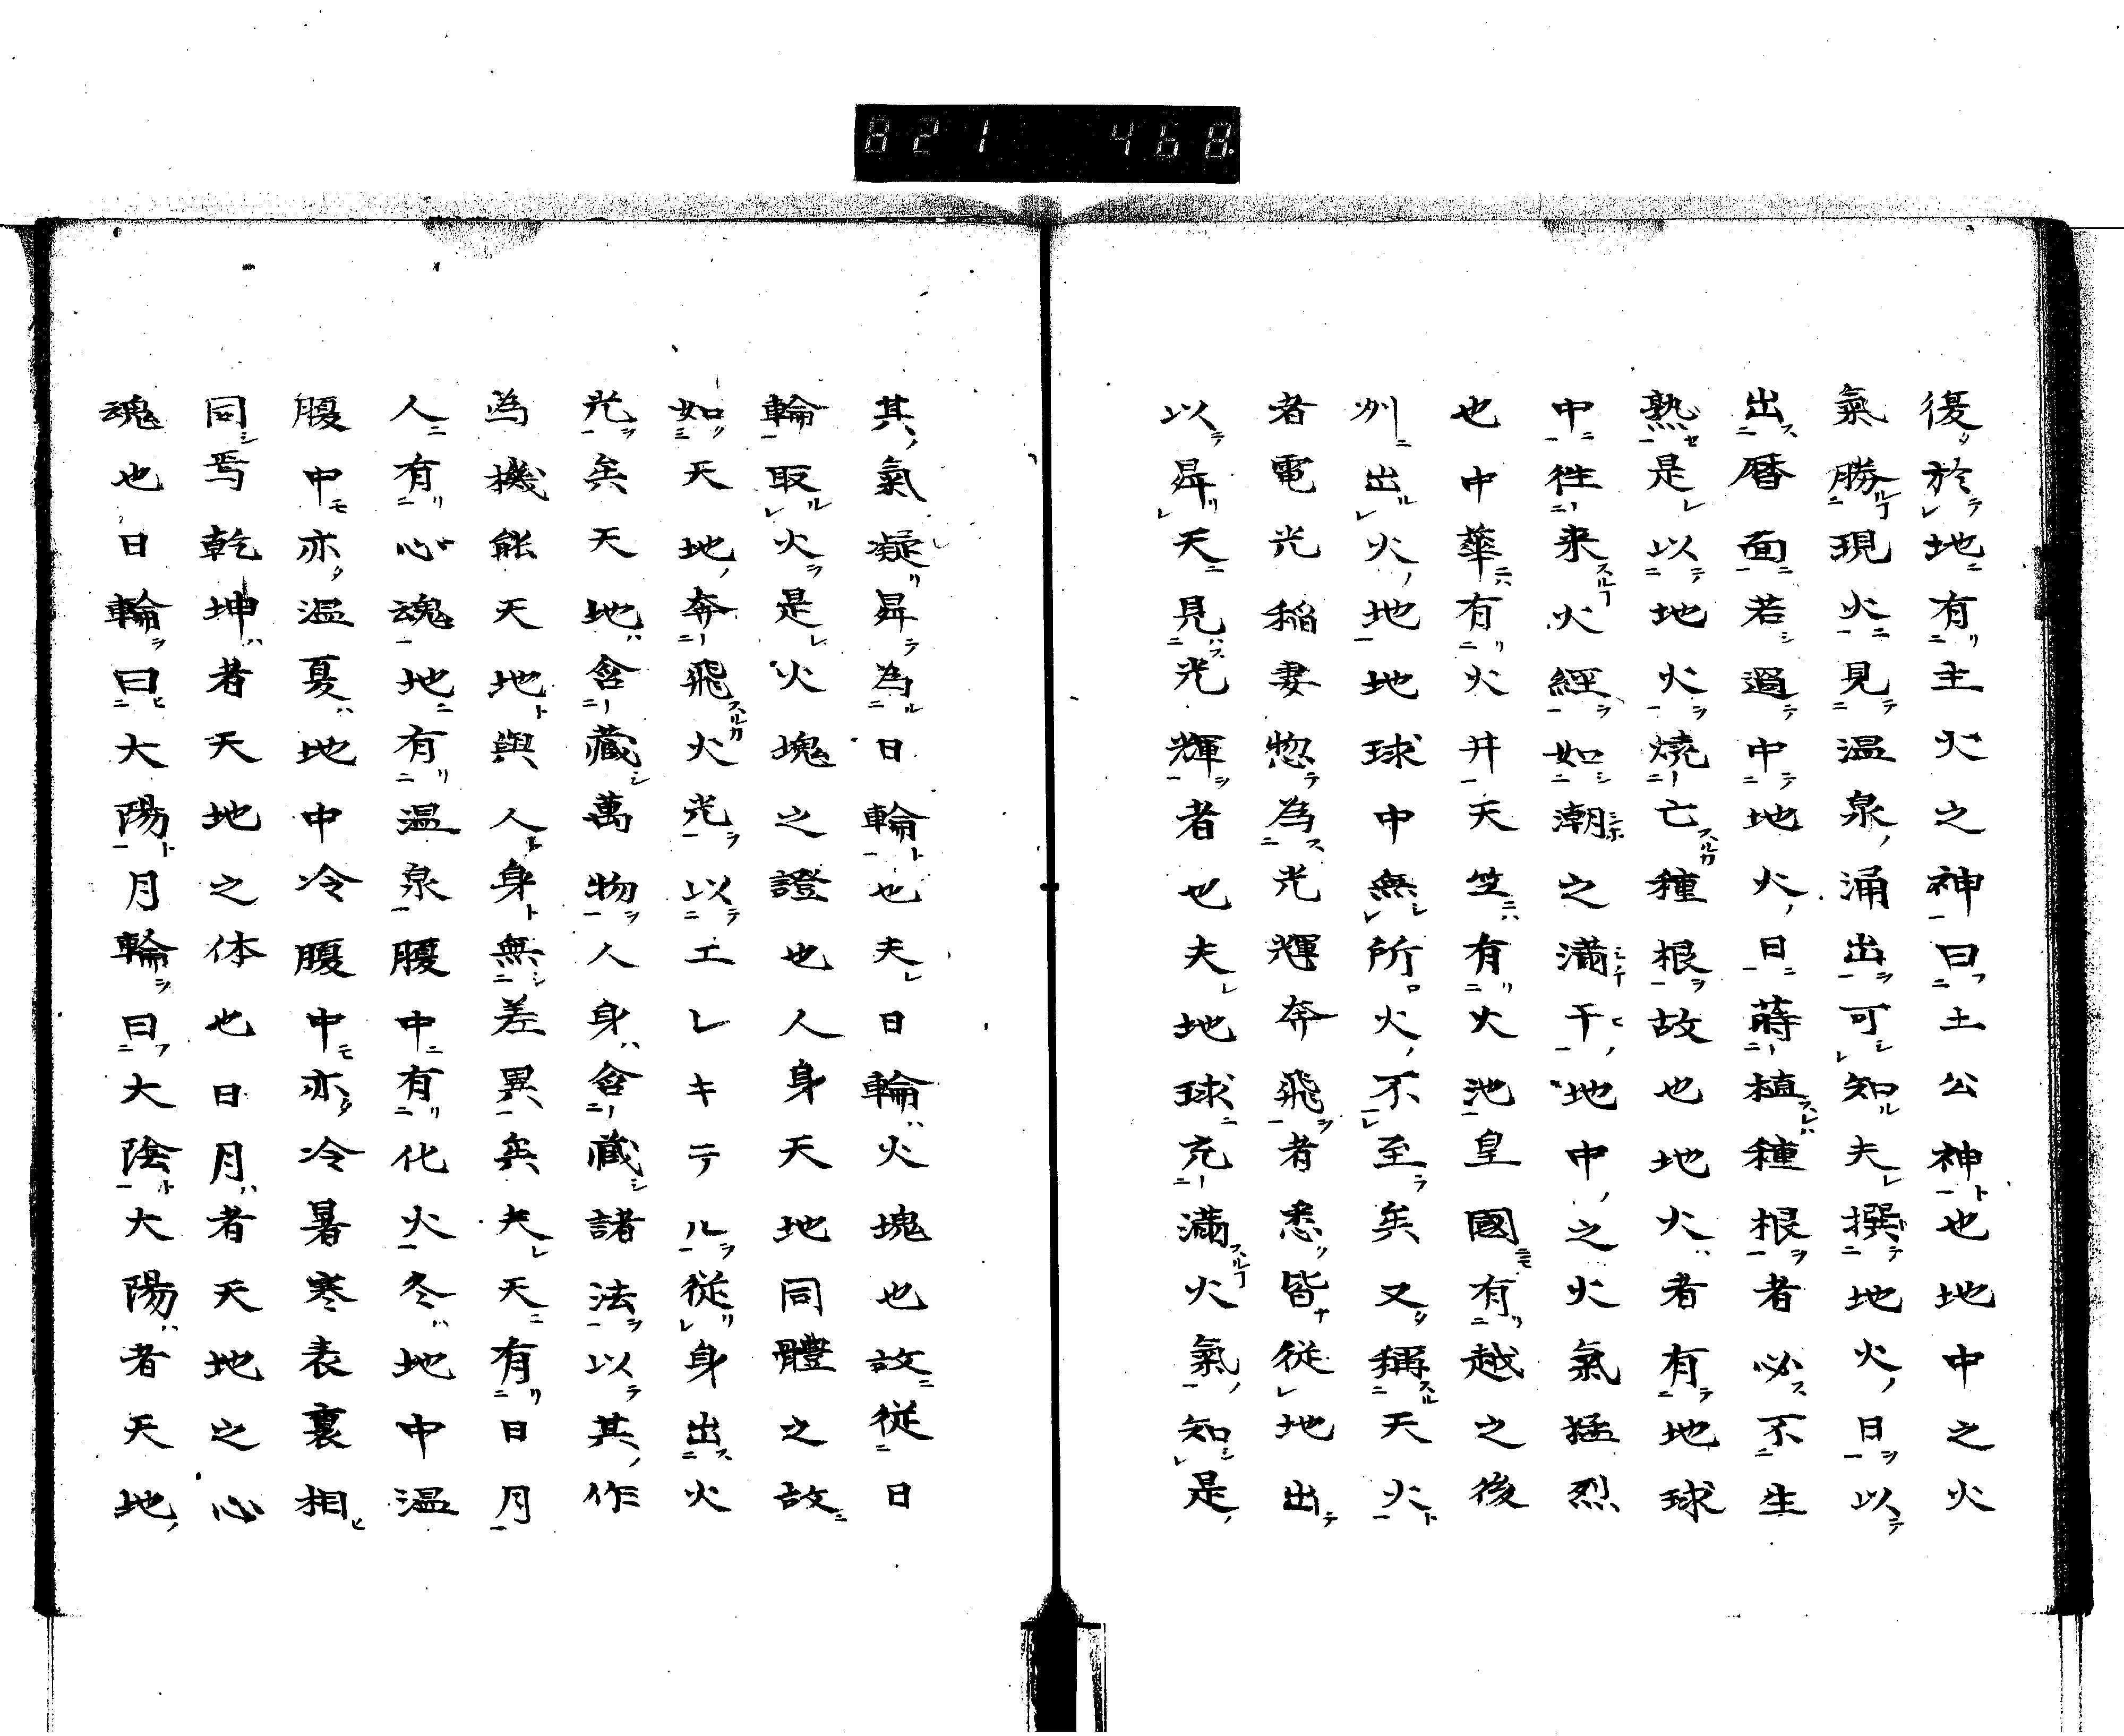 821 468
復於地有主火之神曰土公神也地中之火
氣勝現火見温泉涌出可知夫撰地火日以
出暦面若過中地火日蒔植種根者必不生
熟是以地火燒亡種根故也地火者有地球
中往来火經如潮之満干地中之火氣猛烈
也中華有火井天竺有火池皇國有越之後
州出火地地球中無所火不至矣又稱天火
者電光稲妻惣為光輝奔飛者悉皆従地出
以昇天見光輝者也夫地球充満火氣知是
其氣凝昇為日輪也夫日輪火塊也故従日
輪取火是火塊之證也人身天地同體之故
如天地奔飛火光以エレキテル従身出火
光矣天地含藏萬物人身含藏諸法以其作
為機能天地與人身無差異矣夫天有日月
人有心魂地有温泉腹中有化火冬地中温
腹中亦温夏地中冷腹中亦冷暑寒表裏相
同焉乾坤者天地之体也日月者天地之心
魂也日輪曰大陽月輪曰大陰大陽者天地